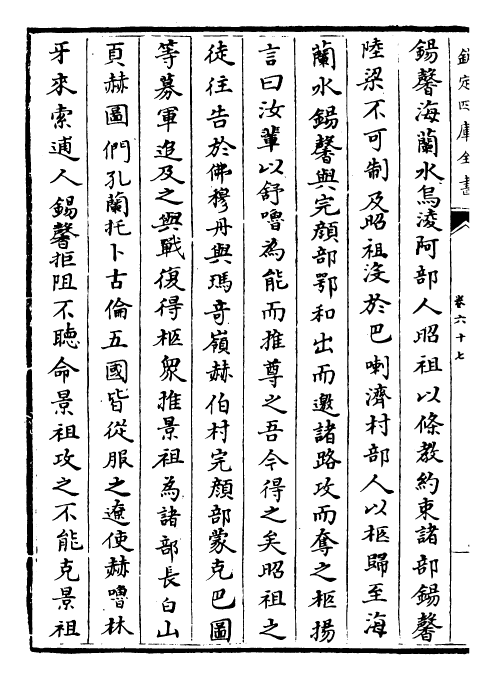 欽定四庫全書
卷六十七
錫馨海蘭水烏淩阿部人昭祖以條教約束諸部錫馨
陸梁不可制及昭祖沒於巴喇濟村部人以柩歸至海
蘭水錫馨與完顔部鄂和出而邀諸路攻而奪之柩揚
言曰汝輩以舒嚕為能而推尊之吾今得之矣昭祖之
徒往告於佛穆丹與瑪竒嶺赫伯村完顔部蒙克巴圖
等募軍追及之與戰復得柩衆推景祖為諸部長白山
頁赫圖們孔蘭托卜古倫五國皆從服之遼使赫嚕林
牙來索逋人錫馨拒阻不聽命景祖攻之不能克景祖